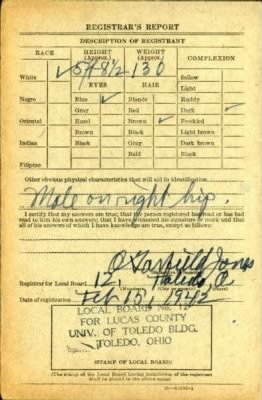 REGISTRAR'S REPORT
DESCRIPTION OF REGISTRANT
RACE HEIGHT (Approx.) WEIGHT (Approx.) COMPLEXION
White ✓ 5 ft 8 1/2 130 Sallow
EYES HAIR Light
Negro Blue ✓ Blonde Ruddy
Gray Red Dark ✓
Oriental Hazel Brown ✓ Freckled
Brown Black Light brown
Indian Black Gray Dark brown
Bald Black
Filipino
Other obvious physical characteristics that will aid in identification
Mole on right hip.
I certify that my answers are true; that the person registered has read or has had
read to him his own answers; that I have witnessed his signature or mark and that
all of his answers of which I have knowledge are true, except as follows:
O Garfield Jones
Registrar for Local Board 12 Toledo O.
(Number)
Date of registration Feb 15, 1942
LOCAL BOARD No. 12
FOR LUCAS COUNTY
UNIV. OF TOLEDO BLDG.
TOLEDO, OHIO
(STAMP OF LOCAL BOARD)
(The stamp of the Local Board having jurisdiction of the registrant
shall be placed in the above space)